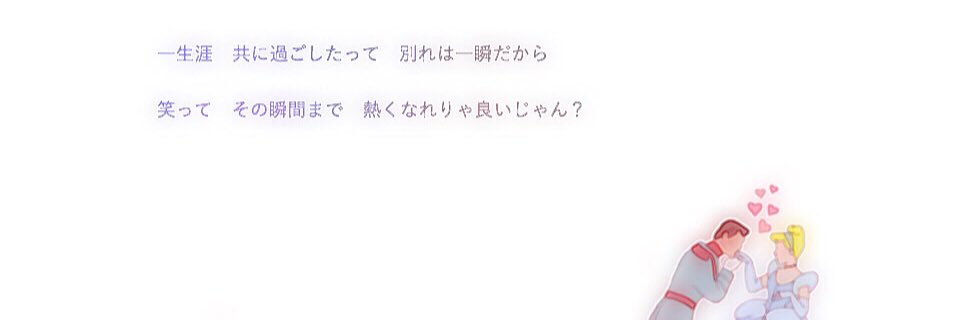 一生涯　共に過ごしたって　別れは一瞬だから
笑って　その瞬間まで　熱くなれりゃ良いじゃん？